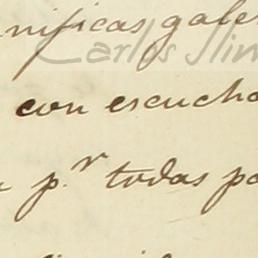 nificas gale
Carlos Slim
con escucha
p.r todas po